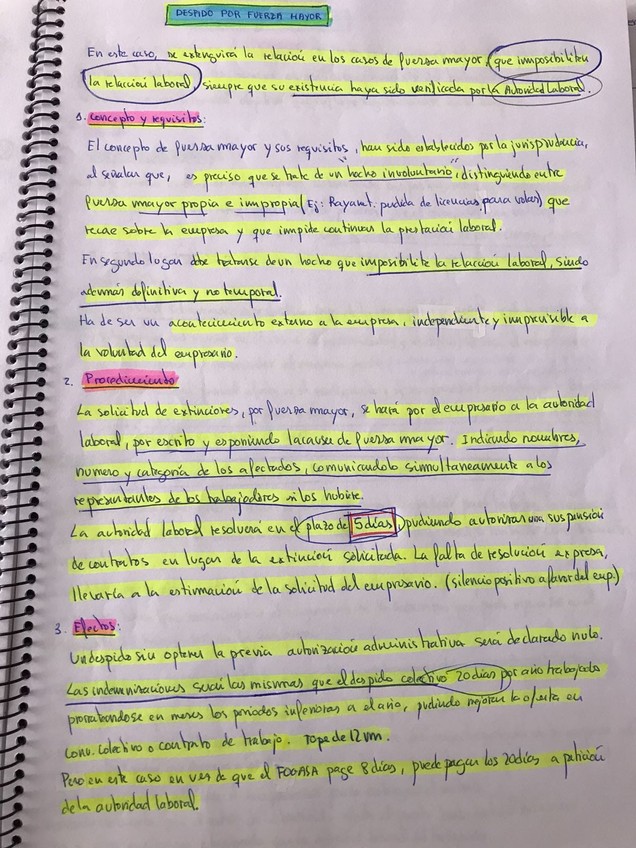 DESPIDO POR FUERZA MAYOR
En este caso, se extinguirá la relación en los casos de fuerza mayor, que imposibiliten
la relación laboral, siempre que su existencia haya sido verificada por la Autoridad Laboral.
1. Concepto y requisitos:
El concepto de fuerza mayor y sus requisitos, han sido establecidos por la jurisprudencia,
al señalar que, es preciso que se trate de un "hecho involuntario", distinguiendo entre
fuerza mayor propia e impropia (Ej: Rayanet. perdida de licencias para volar) que
recae sobre la empresa y que impide continuar la prestación laboral.
En segundo lugar debe tratarse de un hecho que imposibilite la relación laboral, siendo
además definitiva y no temporal.
Ha de ser un acontecimiento externo a la empresa, independiente y imprevisible a
la voluntad del empresario.
2. Procedimiento
La solicitud de extinciones, por fuerza mayor, se hará por el empresario a la autoridad
laboral, por escrito y esponiendo la causa de fuerza mayor. Indicando nombres,
numero y categoría de los afectados, comunicandolo simultaneamente a los
representantes de los trabajadores si los hubiere.
La autoridad laboral resolverá en el plazo de 5 días, pudiendo autorizar una suspensión
de contratos en lugar de la extinción solicitada. La falta de resolución expresa,
llevaría a la estimación de la solicitud del empresario. (silencio positivo a favor del emp.)
3. Efectos:
Un despido sin obtener la previa autorización administrativa será declarado nulo.
Las indemnizaciones serán las mismas que el despido colectivo 20 días por año trabajado
prorrateandose en meses los periodos inferiores al año, pudiendo mejorar la oferta en
conv. colectivo o contrato de trabajo. Tope de 12 m.
Pero en este caso en vez de que el FOGASA page 8 días, puede pagar los 20 días a petición
de la autoridad laboral.